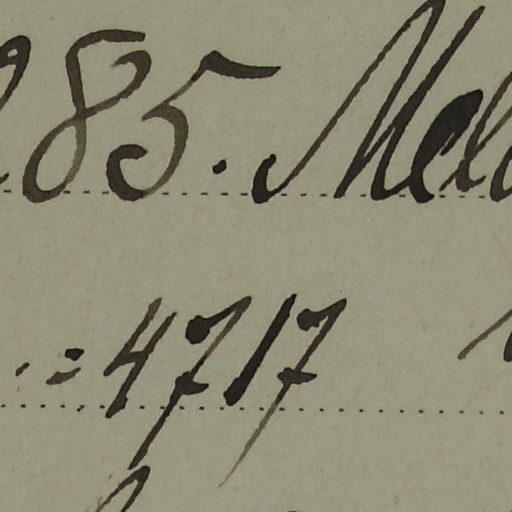 85. Mel
.= 4717